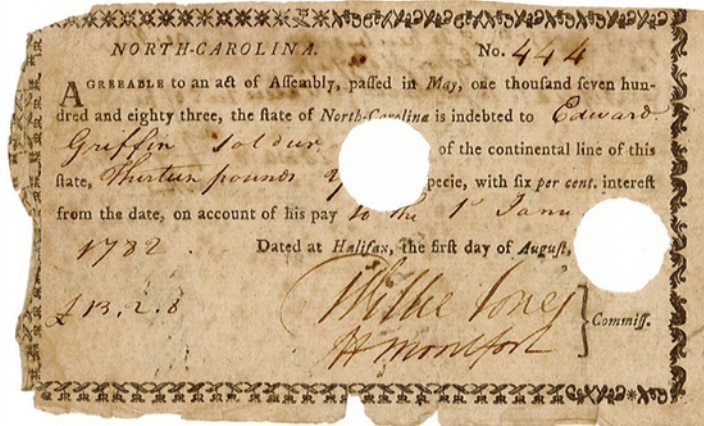 NORTH-CAROLINA. No. 444
AGREEABLE to an act of Aſſembly, paſſed in May, one thouſand ſeven hun-
dred and eighty three, the ſtate of North-Carolina is indebted to Edward
Griffin Soldier of the continental line of this
ſtate, Thirteen pounds pecie, with ſix per cent. intereſt
from the date, on account of his pay to the 1st Janu
1782 . Dated at Halifax, the firſt day of Auguſt,
£ 13.2.8 Willie Jones
HMontfort Commiſſ.